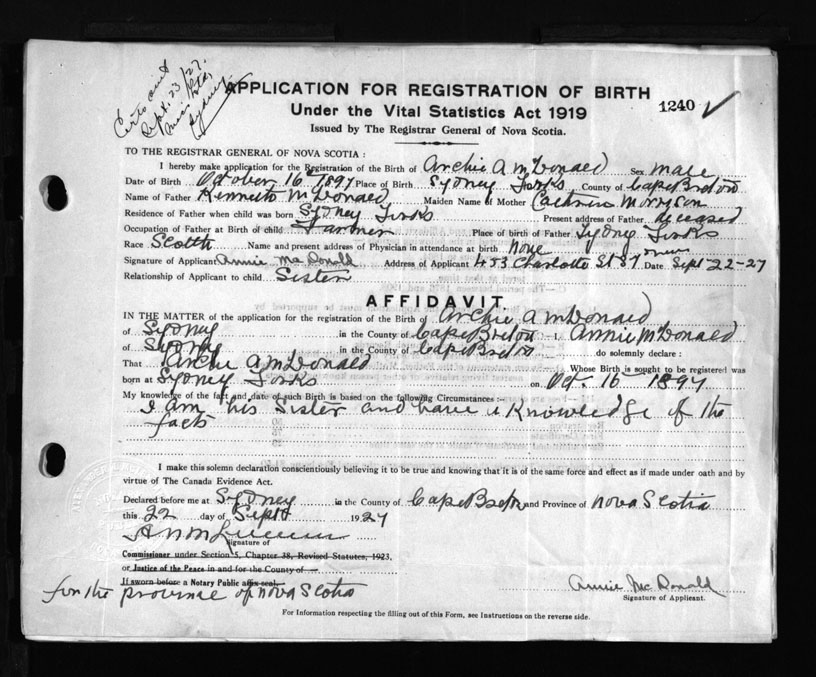 Sept. 23/27.
Sydney
APPLICATION FOR REGISTRATION OF BIRTH
Under the Vital Statistics Act 1919
1240 ✓
Issued by The Registrar General of Nova Scotia.
TO THE REGISTRAR GENERAL OF NOVA SCOTIA :
I hereby make application for the Registration of the Birth of Archie A McDonald Sex male
Date of Birth October 16 - 1897 Place of Birth Sydney Forks County of Cape Breton
Name of Father Kenneth McDonald Maiden Name of Mother Catherine Morrison
Residence of Father when child was born Sydney Forks Present address of Father deceased
Occupation of Father at Birth of child Farmer Place of birth of Father Sydney Forks
Race Scotch Name and present address of Physician in attendance at birth none
Signature of Applicant Annie MacDonald Address of Applicant 453 Charlotte St Sydney Date Sept 22-27
Relationship of Applicant to child Sister
AFFIDAVIT.
IN THE MATTER of the application for the registration of the Birth of Archie A McDonald
of Sydney in the County of Cape Breton I. Annie McDonald
of Sydney in the County of Cape Breton do solemnly declare :
That Archie A McDonald Whose Birth is sought to be registered was
born at Sydney Forks on Oct. 16 - 1897
My knowledge of the fact and date of such Birth is based on the following Circumstances :-
I am his Sister and have a knowledge of the
facts
I make this solemn declaration conscientiously believing it to be true and knowing that it is of the same force and effect as if made under oath and by
virtue of The Canada Evidence Act.
Declared before me at Sydney in the County of Cape Breton and Province of Nova Scotia
this 22 day of Sept 1927
Signature of
Commissioner under Section 5, Chapter 38, Revised Statutes, 1923,
or Justice of the Peace in and for the County of
If sworn before a Notary Public affix seal.
for the province of Nova Scotia
Annie McDonald
Signature of Applicant.
For Information respecting the filling out of this Form, see Instructions on the reverse side.